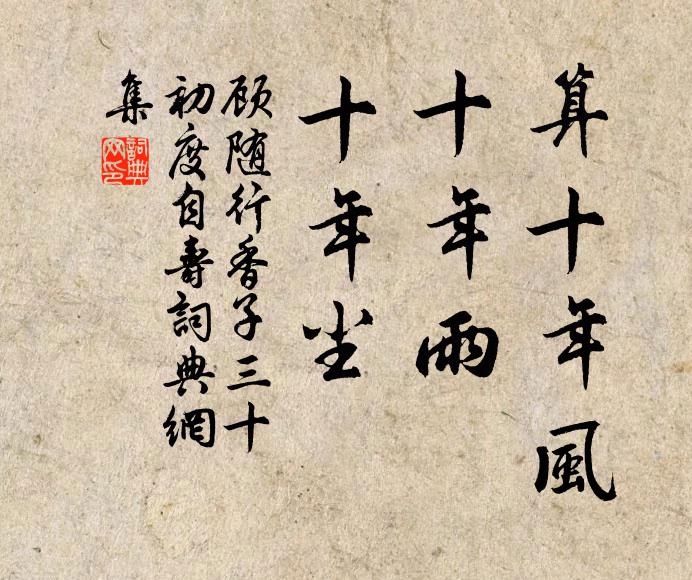 算十年風
十年雨
十年尘
顾随行香子三十
初度自壽詞典網
集
詞典
网印